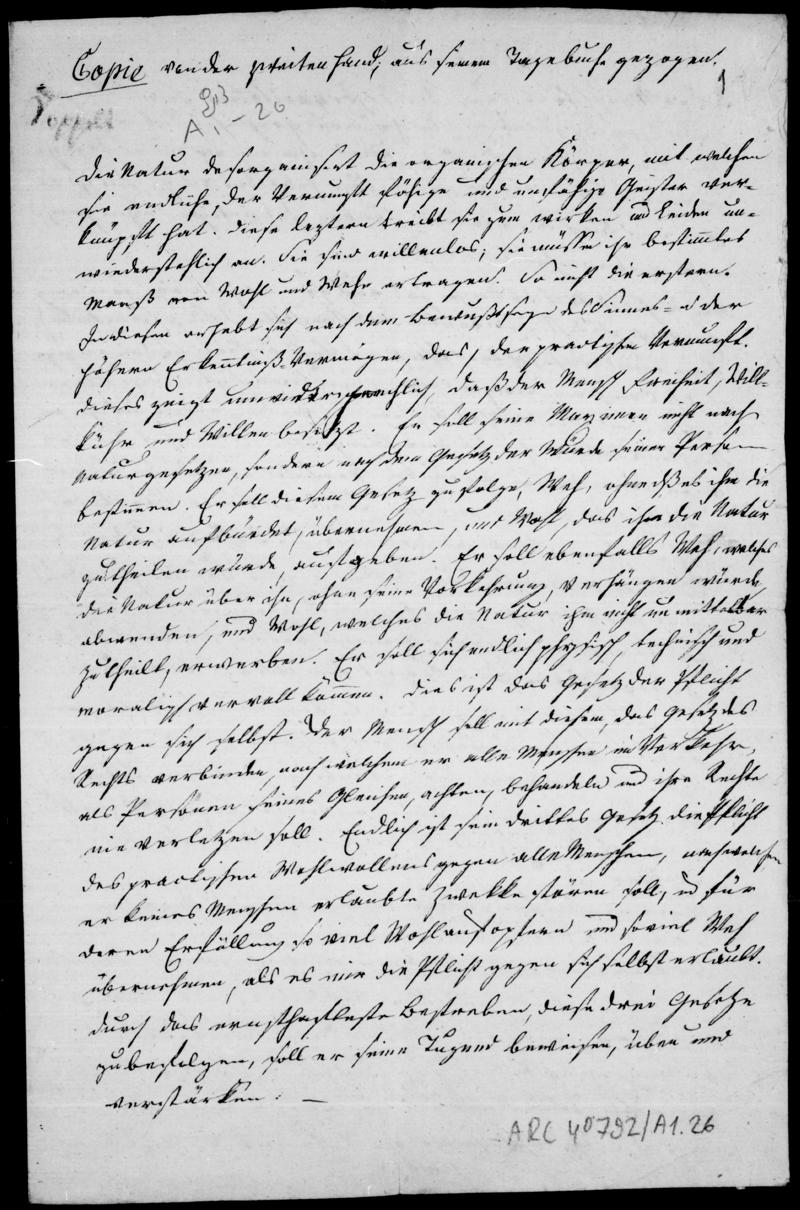 Copie von der zweiten Hand; aus seinem Tagebuche gezogen.
1
Doppelt
A 1 - 26
Die Natur desorganisirt die organischen Körper, mit welchen
sie endliche, der Vernunft fähige und unfähige Geister ver-
knüpft hat. Diese leztern treibt sie zum wirken und leiden un-
wiederstehlich an. Sie sind willenlos; sie müssen ihr bestimmtes
Maaß von Wohl und Wehe ertragen. So nicht die erstern.
In diesen erhebt sich nach dem Bewußtseyn des Sinnes- u der
höhern Erkenntniß-Vermögen, das, der practischen Vernunft.
Dieses zeigt unwidersprechlich, daß der Mensch Freiheit, Will-
kühr und Willen besitzt. Er soll seine Maximen nicht nach
Naturgesetzen, sondern nach dem Gesetz der Würde seiner Person
bestimmen. Er soll diesem Gesetz zufolge, Weh, ohne dß es ihm die
Natur aufbürdet, übernehmen, und Wohl, das ihm die Natur
zutheilen würde, aufgeben. Er soll ebenfalls Weh, welches
die Natur über ihn, ohne seine Vorkehrung, verhängen würde,
abwenden, und Wohl, welches die Natur ihm nicht unmittelbar
zutheilt, erwerben. Er soll sich endlich physisch, technisch und
moralisch vervollkommen. Dies ist das Gesetz der Pflicht
gegen sich selbst. Der Mensch soll mit diesem, das Gesetz des
Rechts verbinden, nach welchem er alle Menschen im Verkehr,
als Personen seines Gleichen, achten, behandeln und ihre Rechte
nie verletzen soll. Endlich ist sein drittes Gesetz die Pflicht
des practischen Wohlwollens gegen alle Menschen, nach welchem
er keines Menschen erlaubte Zwekke stören soll, u für
deren Erfüllung so viel Wohl aufopfern und soviel Weh
übernehmen, als es nur die Pflicht gegen sich selbst erlaubt.
Durch das ernsthafteste Bestreben, diese drei Gesetze
zubefolgen, soll er seine Tugend beweisen, üben und
verstärken. —
ARC 40792/A1.26